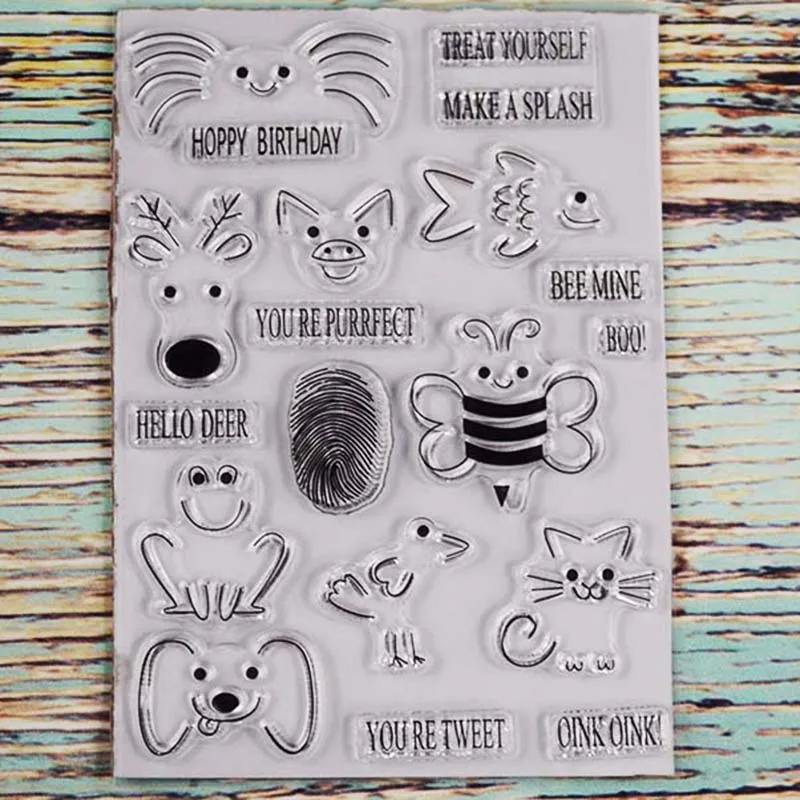 TREAT YOURSELF
MAKE A SPLASH
HOPPY BIRTHDAY
BEE MINE
YOU'RE PURRFECT
BOO!
HELLO DEER
YOU'RE TWEET
OINK OINK!